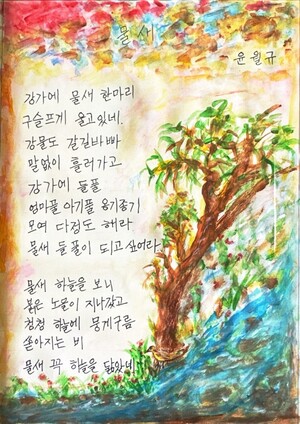 물새
윤월규
강가에 물새 한마리
구슬프게 울고있네.
강물도 갈길바빠
말없이 흘러가고
강가에 들풀
엄마풀 아기풀 옹기종기
모여 다정도 해라
물새 들풀이 되고 싶어라
물새 하늘을 보니
붉은 노을이 지나갔고
청청 하늘에 뭉게구름
쏟아지는 비
물새 꼭 하늘을 닮았네